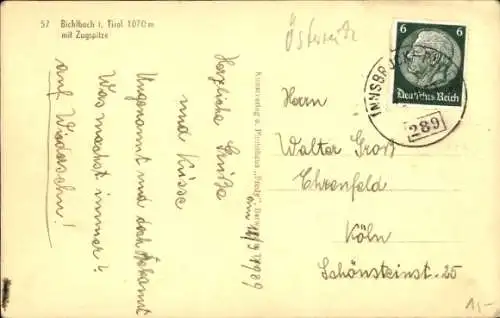 57 Bichlbach i. Tirol 1070 m
mit Zugspitze
Österreich
Herzliche Grüße
und Küsse
Ungenannt und doch bekannt
Was machst immer?
auf Wiedersehn!
am 18/9 1939
Kunstverlag u. Photohaus „Fredy“,
6 6
Deutsches Reich
INNSBRUCK
289
Herrn
Walter Groß
Ehrenfeld
Köln
Schönsteinst. 25
15,-